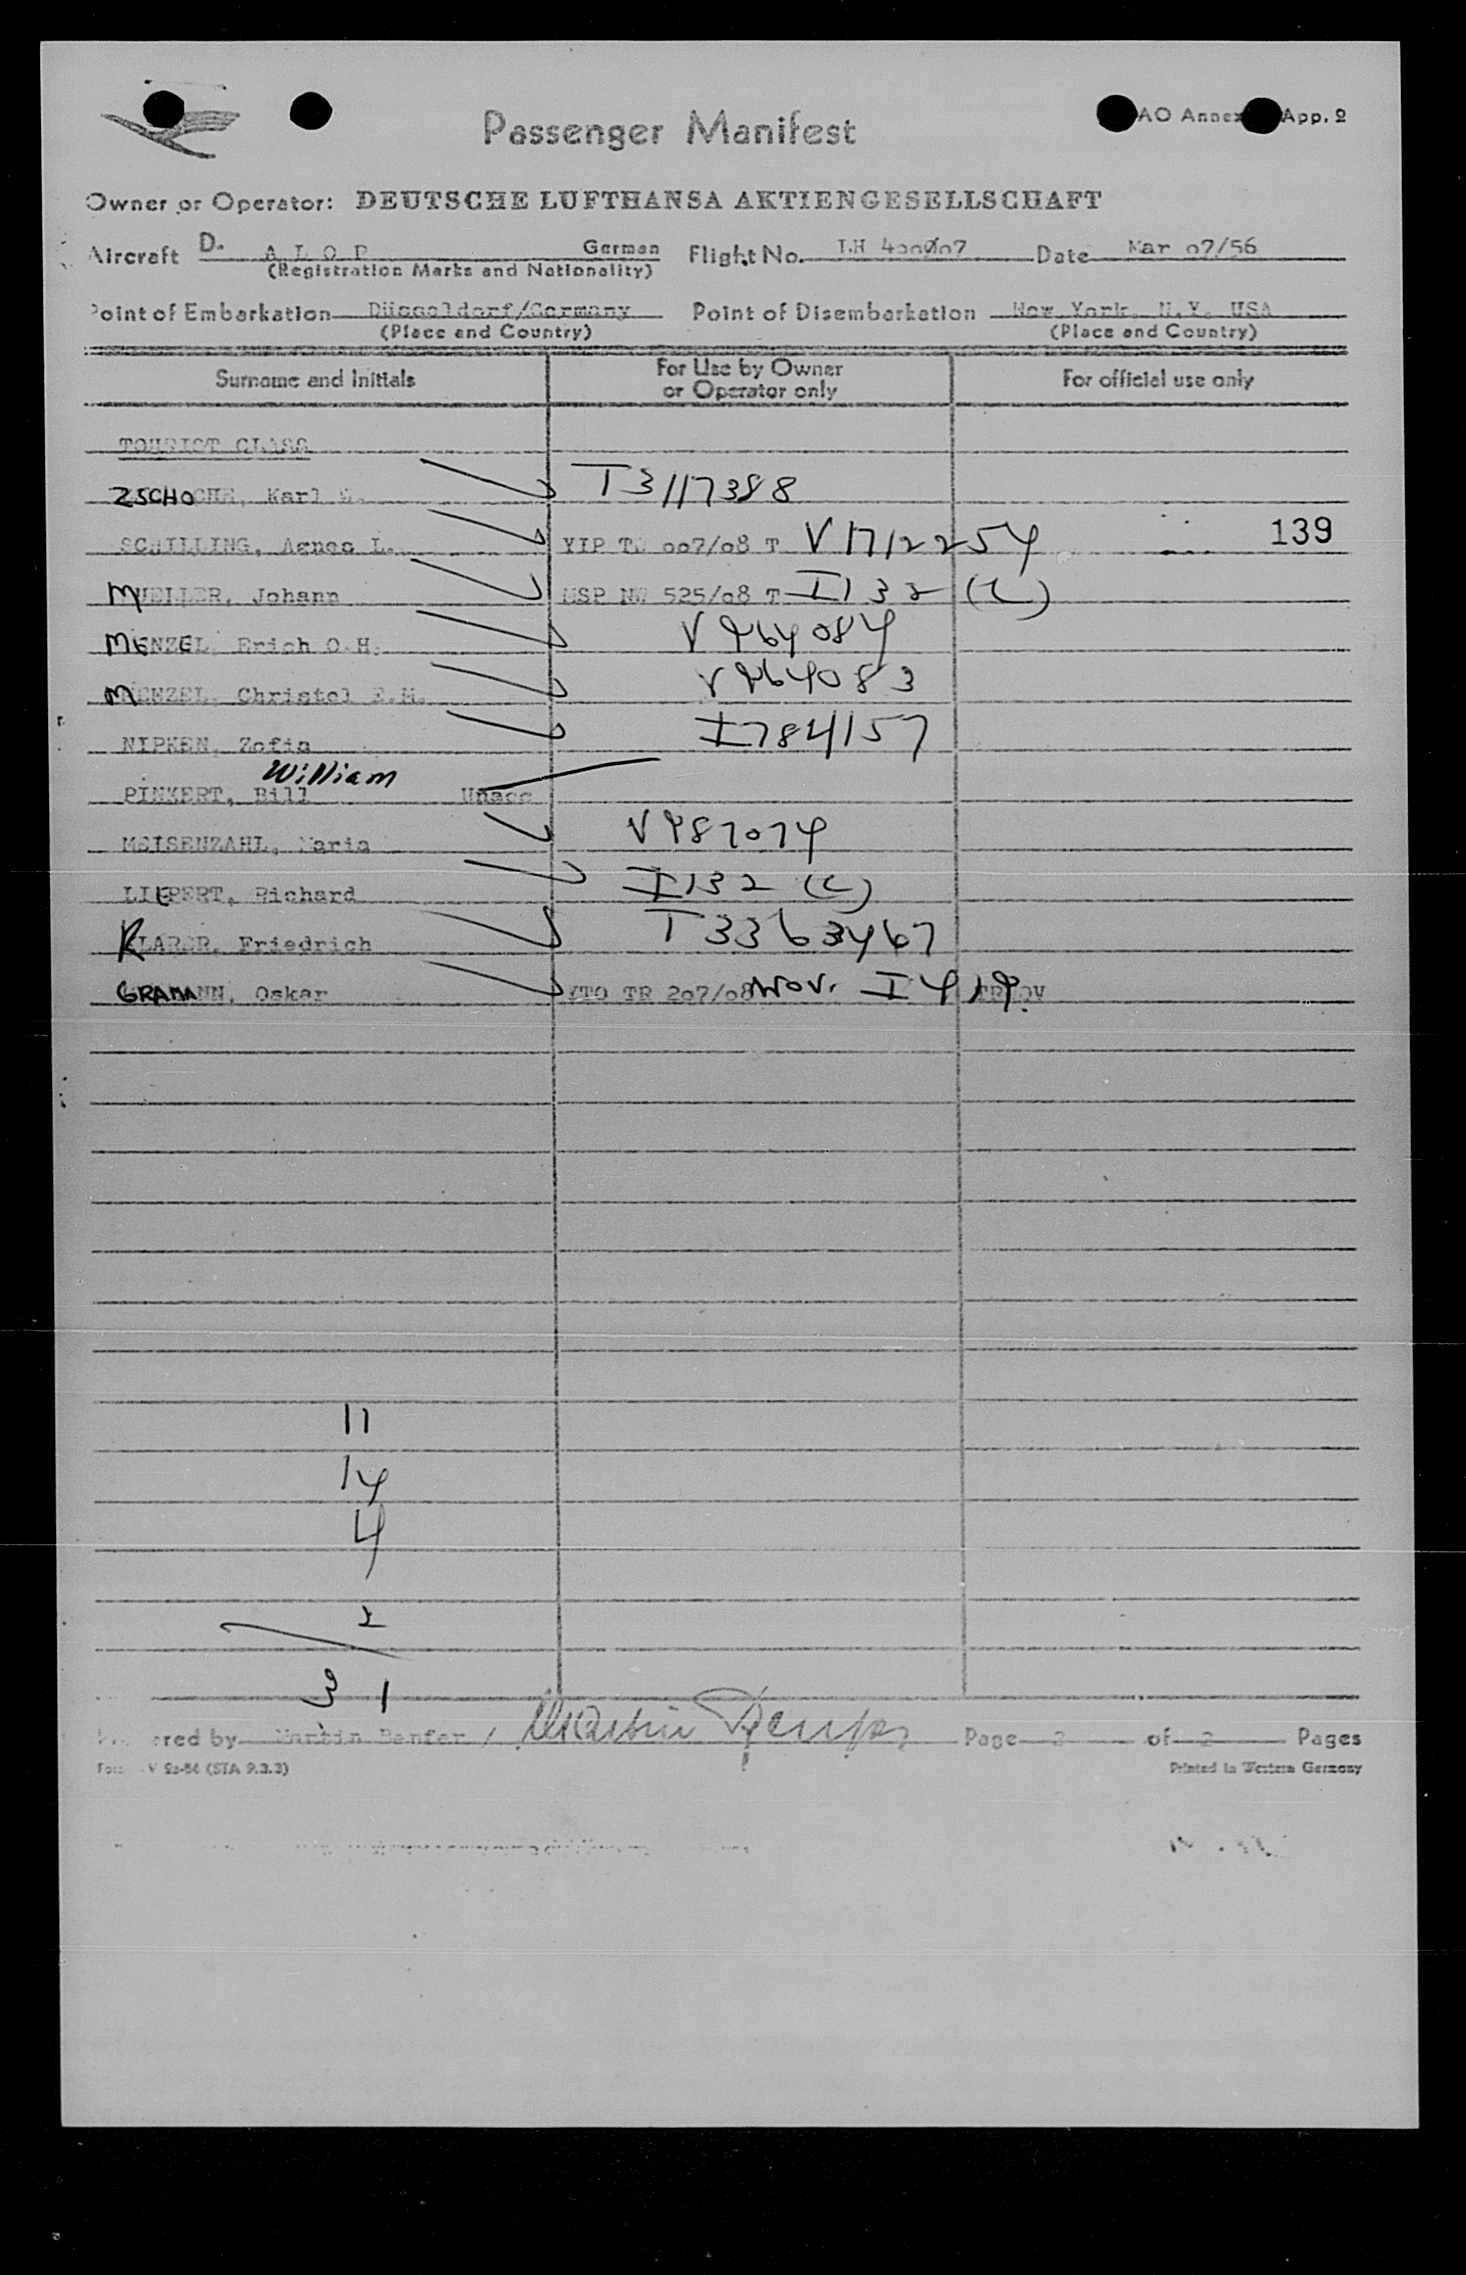 Passenger Manifest
AO Annex App. 2
Owner or Operator: DEUTSCHE LUFTHANSA AKTIENGESELLSCHAFT
Aircraft D. A L O P German Flight No. LH 400/007 Date Mar 07/56
(Registration Marks and Nationality)
Point of Embarkation Düsseldorf/Germany Point of Disembarkation New York, N.Y. USA
(Place and Country) (Place and Country)
Surname and Initials For Use by Owner or Operator only For official use only
TOURIST CLASS
ZSCHOCHE, Karl W. T3117388
SCHILLING, Agnes L. YIP TW 007/08 T V1712254 139
MUELLER, Johann MSP NW 525/08 T I132 (C)
MENZEL, Erich O.H. V964084
MENZEL, Christel E.M. V964083
NIPKEN, Zofia I784157
William
PINKERT, Bill Unacc
MEISENZAHL, Maria V987074
LIEPERT, Richard I132 (C)
KLARER, Friedrich T3363467
GRAMANN, Oskar YTO TR 207/08 Nov. I419
11
14
4
2
31
ered by Martin Benfer, Martin Benfer Page 2 of 2 Pages
(STA 9.3.3) Printed in Western Germany